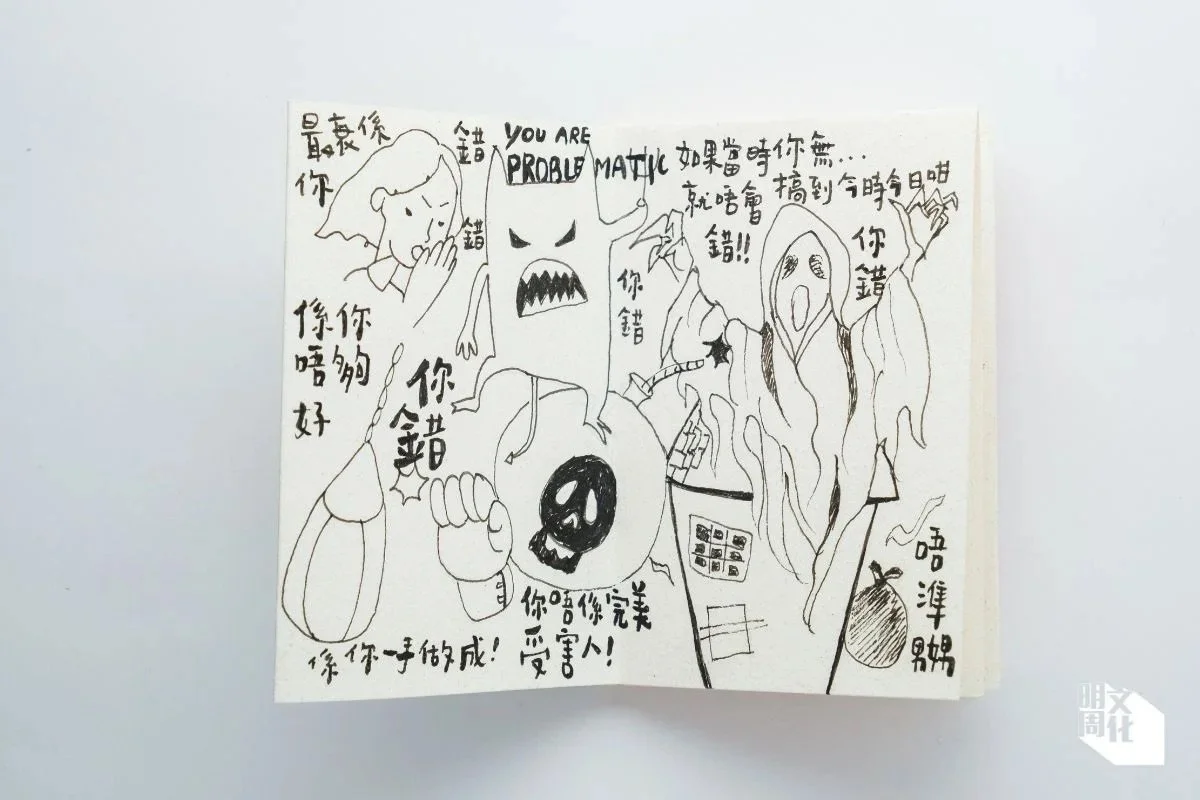 最衰係
你
錯
錯
係你
唔夠
好
你
錯
係你一手做成！
YOU ARE
PROBLEMATIC
你
錯
你唔係完美
受害人！
如果當時你無...
就唔會搞到今時今日咁
錯!!
你
錯
唔
準
嬲
明周
文化